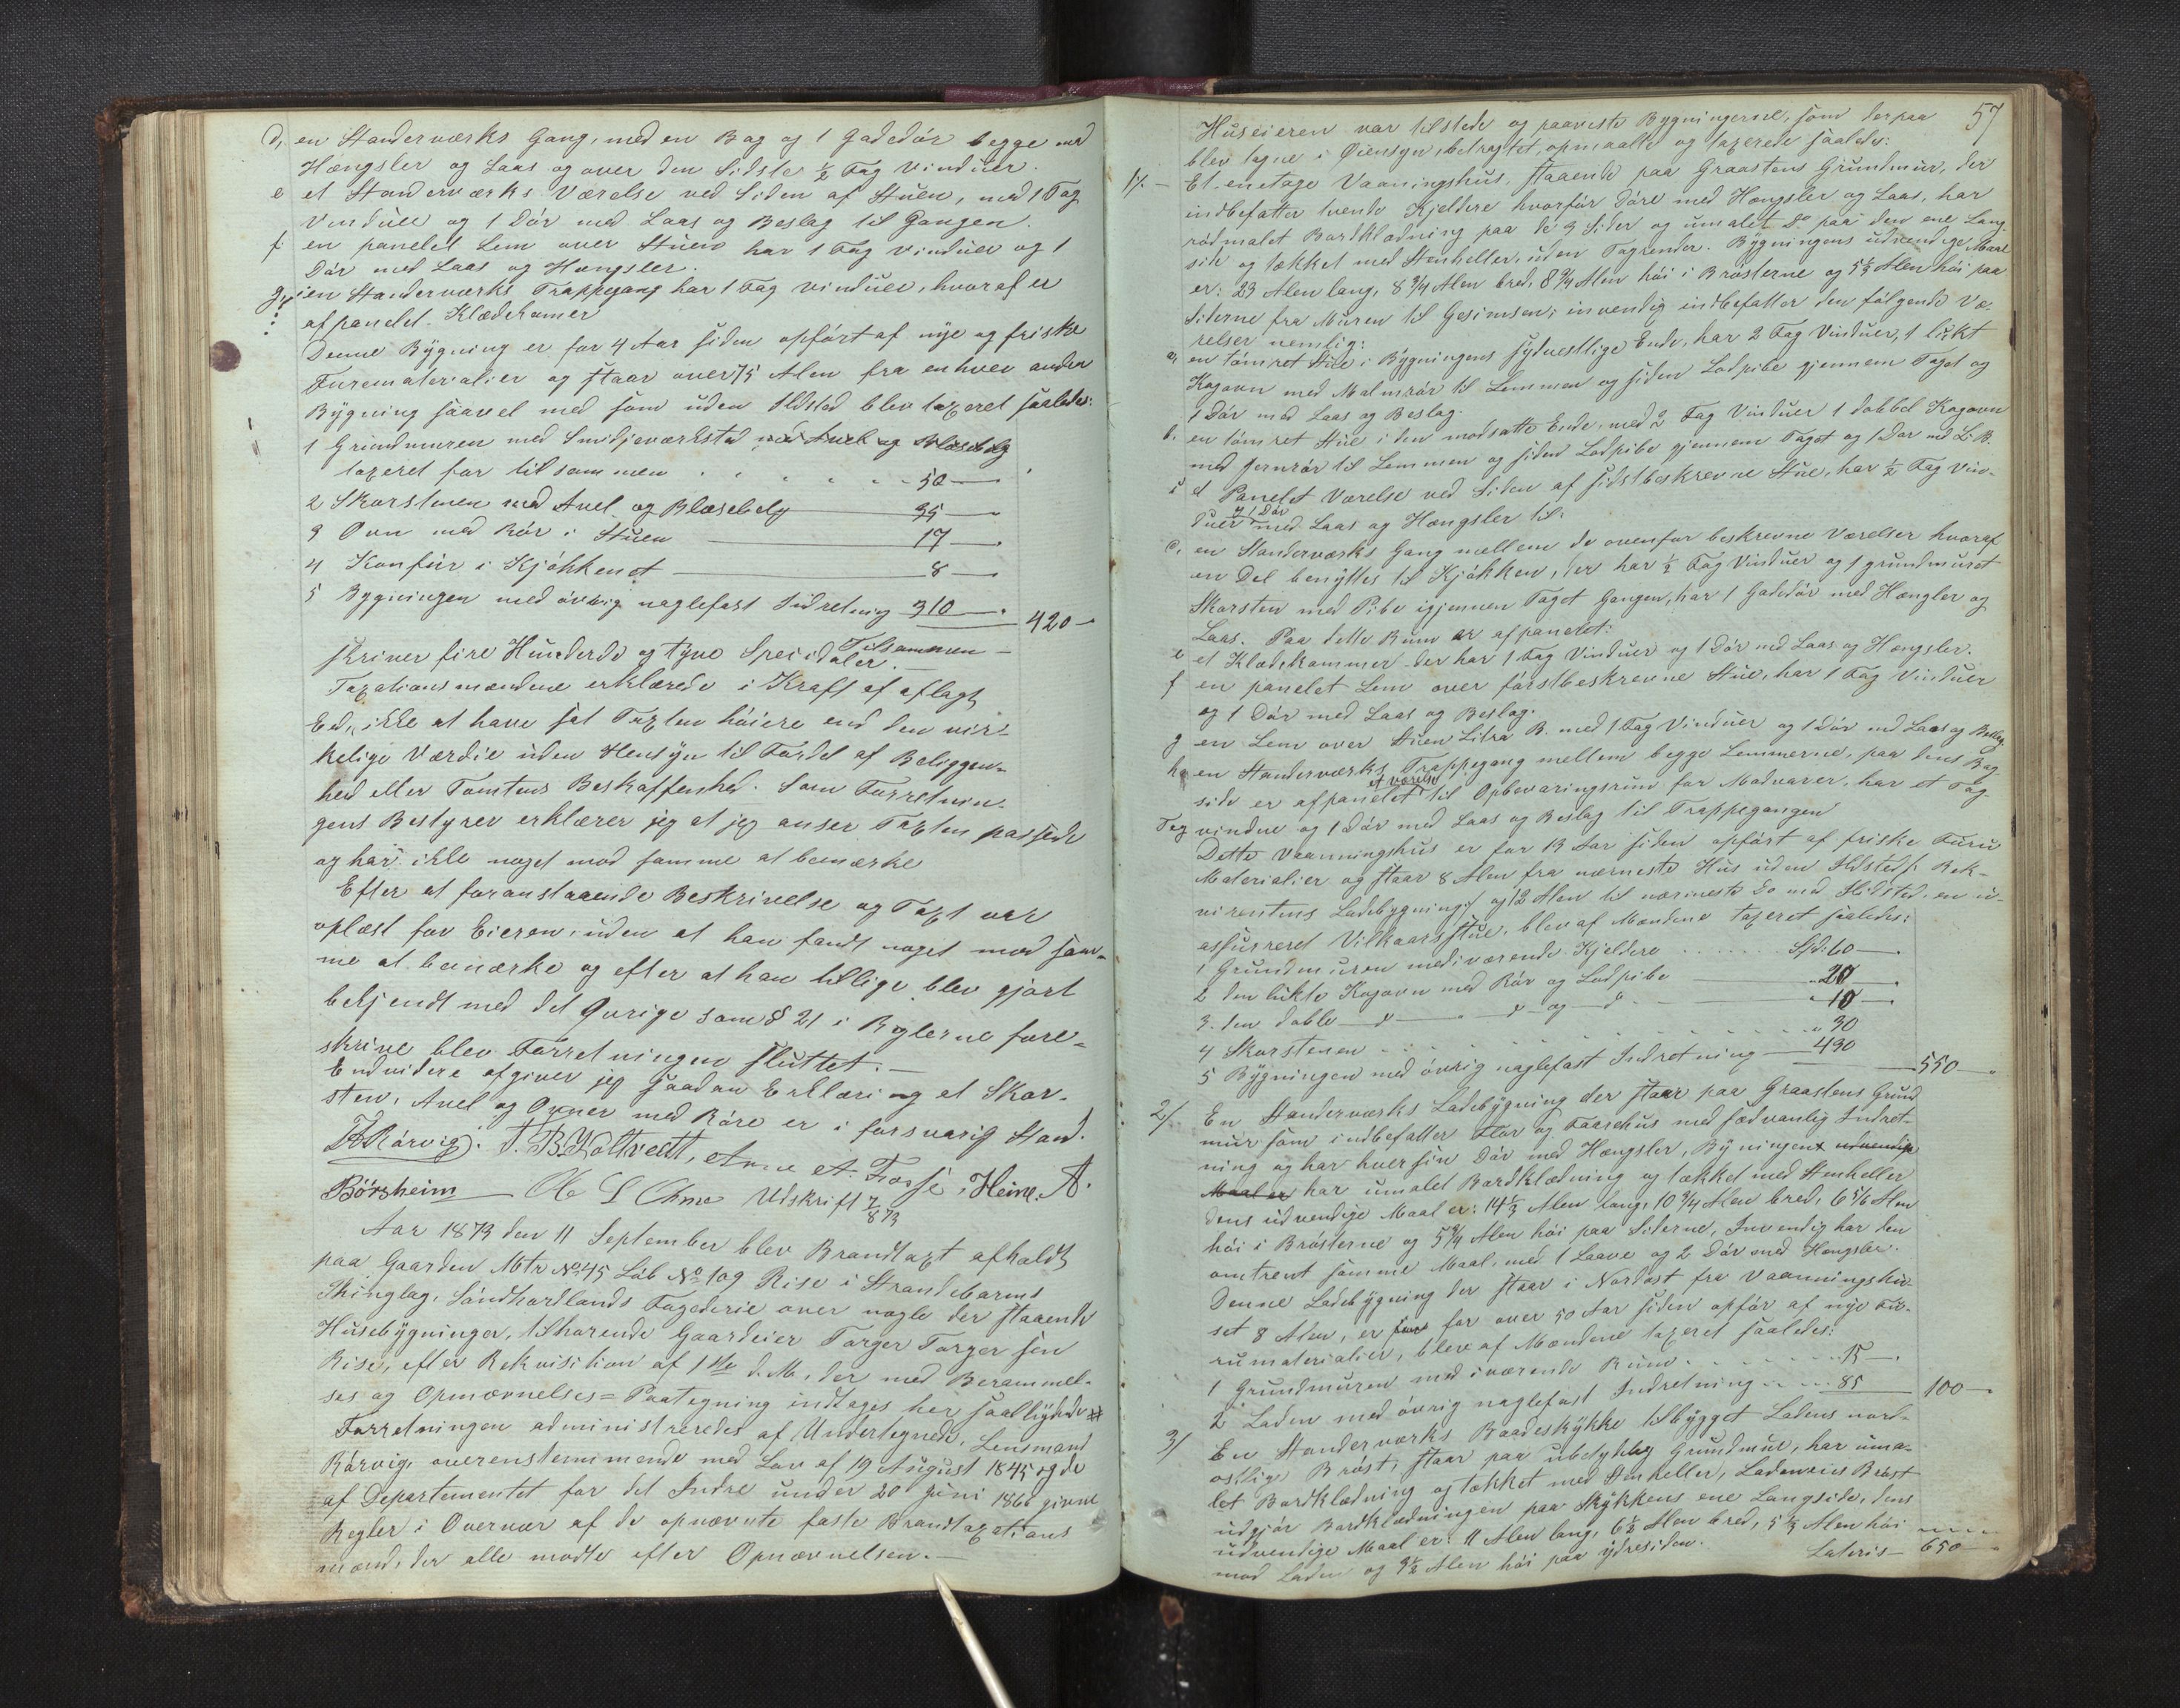 d, en Standerværks Gang, med en Bag og 1 Gadedör begge med
Hængsler og Laas og over den Sidste ½ Fag Vinduer.
e et Standerværks Værelse ved Siden af Stuen, med 1 Fag
Vinduer og 1 Dör med Laas og Beslag til Gangen.
f. en panelet Lem over Stuen har 1 Fag vinduer og 1
Dör med Laas og Hængsler.
g, en Standerværks Trappegang har 1 Fag vinduer, hvoraf er
afpanelet Klædekamer
Denne Bygning er for 4 Aar siden opført af nye og friske
Furematerialier og staar over 75 Alen fra enhver anden
Bygning saavel med som uden Ildsted blev taxeret saaledes:
1 Grundmuren med Smidjeværksted med Avel og Blæsebelg
taxeret for tilsammen . . . . . . 50 —
2 Skorstenen med Avel og Blæsebelg 35 —
3 Ovn med Rör i Stuen 17 —
4 Komfur i Kjøkkenet 8 —
5 Bygningen med övrig naglefast Indretning 310 — 420 —
Tilsammen —
skriver fire Hunderde og tyve Speciedaler.
Taxationsmændene erklærede i Kraft af aflagt
Eed, ikke at have sat Taxten höiere end den vir-
kelige Værdie uden Hensyn til Fordel af Beliggen-
hed eller Tomtens Beskaffenhed. Som Forretnin-
gens Bestyrer erklærer jeg at jeg anser Taxten passende
og har ikke noget mod samme at bemærke
Efter at foranstaaende Beskrivelse og Taxt var
oplæst for Eieren, uden at han fandt noget mod sam-
me at bemærke og efter at han tillige blev gjort
bekjendt med det Øvrige som § 21 i Reglerne fore-
skrive blev Forretningen sluttet. —
Endvidere afgiver jeg saadan Erklæring at Skor-
sten, Avel og Ovner med Röre er i forsvarlig Stand.
Rörvig. T. B. Kottvedt, Arne A. Fosse, Heine A.
Börsheim — Ole L Ohme Udskrift 7/8 73
Aar 1873 den 11 September blev Brandtaxt afholdt
paa Gaarden Mtr No 45 Löb No 109 Rise i Strandebarms
Thinglag, Söndhordlands Fogderie over nogle der staaende
Husebygninger, tilhørende Gaardeier Torger Torgersen
Rise, efter Rekvisition af 1ste d. M., der med Berammel-
ses og Opnævnelses=Paategning indtages her saalydende #
Forretningen administreredes af Undertegnede, Lensmand
Rörvig, overensstemmende med Lov af 19 August 1845 og de
af Departementet for det Indre under 20 Juni 1866 givne
Regler i Overvær af de opnævnte faste Brandtaxations
mænd, der alle mødte efter Opnævnelsen. —
57
Huseieren var tilstede og paaviste Bygningerne, som derpaa
blev tagne i Öiensyn, betragtet, opmaalte og taxerede saaledes:
1/. — Et enetage Vaaningshus, staaende paa Graastens Grundmur, der
indbefatter tvende Kjeldere hvorfor Döre med Hængsler og Laas, har
rödmalet Bordklædning paa de 3 Sider og umalet Do paa den ene Lang-
side og tækket med Stenheller, uden Tagrender. Bygningens udvendige Maal
er: 23 Alen lang, 8 3/4 Alen bred, 8 3/4 Alen höi i Brösterne og 5 1/3 Alen höi paa
Siderne fra Muren til Gesimsen; invendig indbefatter den fölgende Væ-
relser nemlig:
a, en tömret Stue i Bygningens sydvestlige Ende, har 2 Fag Vinduer, 1 lukt
Kogovn med Malmrör til Lemmen og siden Lodpibe gjennem Taget og
1 Dör med Laas og Beslag.
b. en tömret Stue i den modsatte Ende, med 2 Fag Vinduer 1 dobbel Kogovn
med Jernrör til Lemmen og siden Lodpibe gjennem Taget og 1 Dör med L. B.
c et Panelet Værelse ved Siden af sidstbeskrevne Stue, har ½ Fag Vin-
duer og 1 Dör med Laas og Hængsler til.
d, en Standerværks Gang mellem de ovenfor beskrevne Værelser hvoraf
en Del benyttes til Kjökken, der har ½ Fag Vinduer og 1 grundmuret
Skorsten med Pibe igjennem Taget Gangen, har 1 Gadedör med Hængler og
Laas. Paa dette Rum er afpanelet:
e et Klædekammer der har 1 Fag Vinduer og 1 Dör med Laas og Hængsler.
f en panelet Lem over förstbeskrevne Stue, har 1 Fag Vinduer
og 1 Dör med Laas og Beslag.
g en Lem over Stuen Litra B. med 1 Fag Vinduer og 1 Dör med Laas og Beslag.
h en Standerværks Trappegang mellem begge Lemmerne, paa dens Bag
side er afpanelet et værelse til Opbevaringsrum for Madvarer, har et Fag
vindue og 1 Dör med Laas og Beslag til Trappegangen
Dette Vaaningshus er for 13 Aar siden opfört af friske Furu
Materialier og staar 8 Alen fra nærmeste Hus uden Ildsted /: Rek-
virentens Ladebygning :/ og 12 Alen til nærmeste Do med Ildsted, en u-
assureret Vilkaarsstue, blev af Mændene taxeret saaledes:
1 Grundmuren med iværende Kjeldere . . . . . Spd. 60 —
2 den lukte Kogovn med Rör og Lodpibe " 20 —
3. den doble — d — " — d — og — d — " 10 —
4 Skorstenen . . . . . . . . " 30
5 Bygningen med övrig naglefast Indretning 430 550 —
2/. En Standerværks Ladebygning der staar paa Graastens Grund
mur som indbefatter Flor og Faarehus med sædvanlig Indret-
ning og har hver sin Dör med Hængsler, Bygningens udvendige
Maal er har umalet Bordklædning og tækket med Stenheller
dens udvendige Maal er: 14 1/3 Alen lang, 10 3/4 Alen bred, 6 5/6 Alen
höi i Brösterne og 5 3/4 Alen höi paa Siderne, Invendig har den
omtrent samme Maal, med 1 Laave og 2 Dör med Hængsler.
Denne Ladebygning der staar i Nordost fra Vaaningshu-
set 8 Alen, er for over 50 Aar siden opför af nye Fu-
rumaterialier, blev af Mændene taxeret saaledes:
1 Grundmuren med iværende Rum . . . . . . 15 —
2 Laden med övrig naglefast Indretning . . . . 85 100 —
3/ En Standerværks Baadeskykke tilbygget Ladens nord-
ostlige Bröst, staar paa ubetydelig Grundmur, har uma-
let Bordklædning og tækket med Stenheller, Ladens Bröst
udgjör Bordklædningen paa Skykkens ene Langside, dens
udvendige Maal er: 11 Alen lang, 6 ½ Alen bred, 5 1/3 Alen höi
mod Laden og 3 ½ Alen höi paa ydresiden. Lateris — 650 —